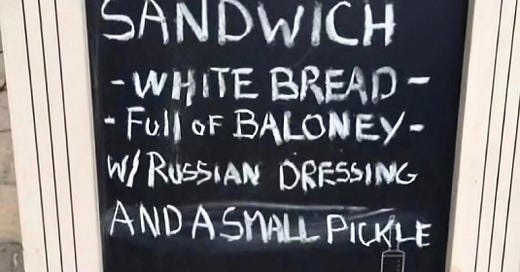 SANDWICH
- WHITE BREAD -
- Full of BALONEY -
W/ RUSSIAN DRESSING
AND A SMALL PICKLE